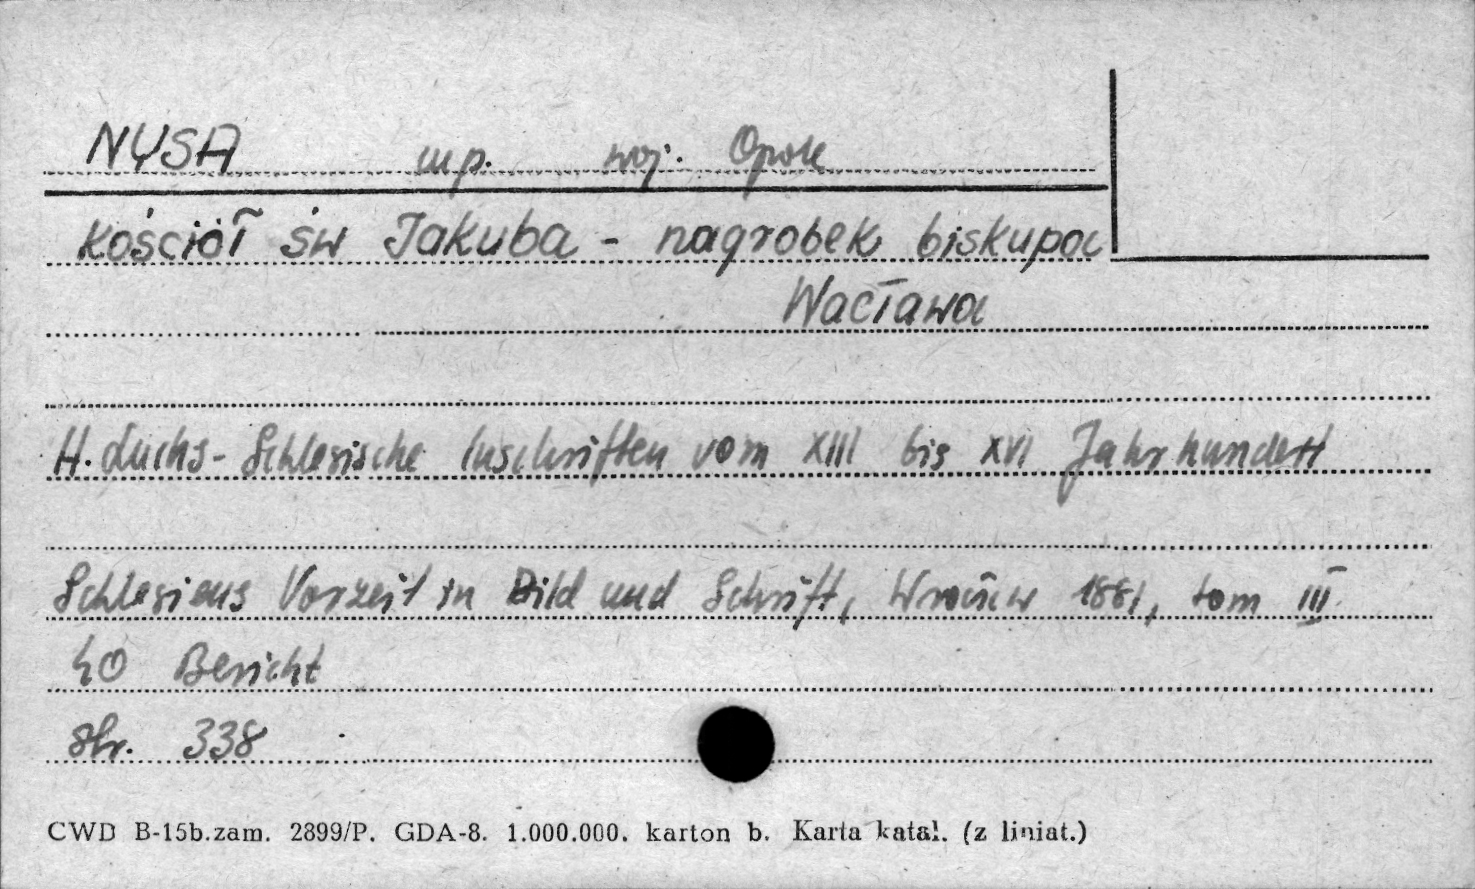 NYSA mp. woj. Opole
Kościół św Jakuba - nagrobek biskupa
Wacława
H. Luchs - Schlesische Inschriften vom XIII bis XVI Jahrhundert
Schlesiens Vorzeit in Bild und Schrift, Wrocław 1881, tom III
40 Bericht
str. 338
CWD B-15b.zam. 2899/P. GDA-8. 1.000.000. karton b. Karta katal. (z liniat.)